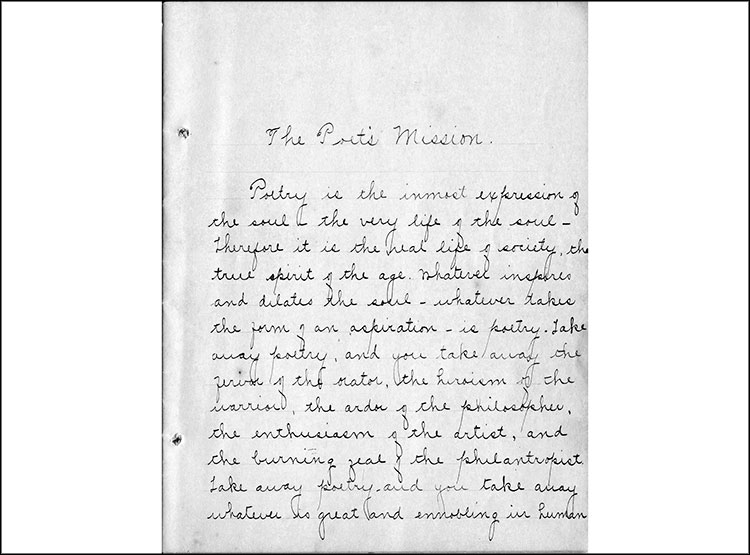 The Poet's Mission.
Poetry is the inmost expression of
the soul – the very life of the soul –
Therefore it is the real life of society, the
true spirit of the age. Whatever inspires
and dilates the soul – whatever takes
the form of an aspiration – is poetry. Take
away poetry, and you take away the
fervor of the orator, the heroism of the
warrior, the ardor of the philosopher,
the enthusiasm of the artist, and
the burning zeal of the philantropist.
Take away poetry and you take away
whatever is great and ennobling in human